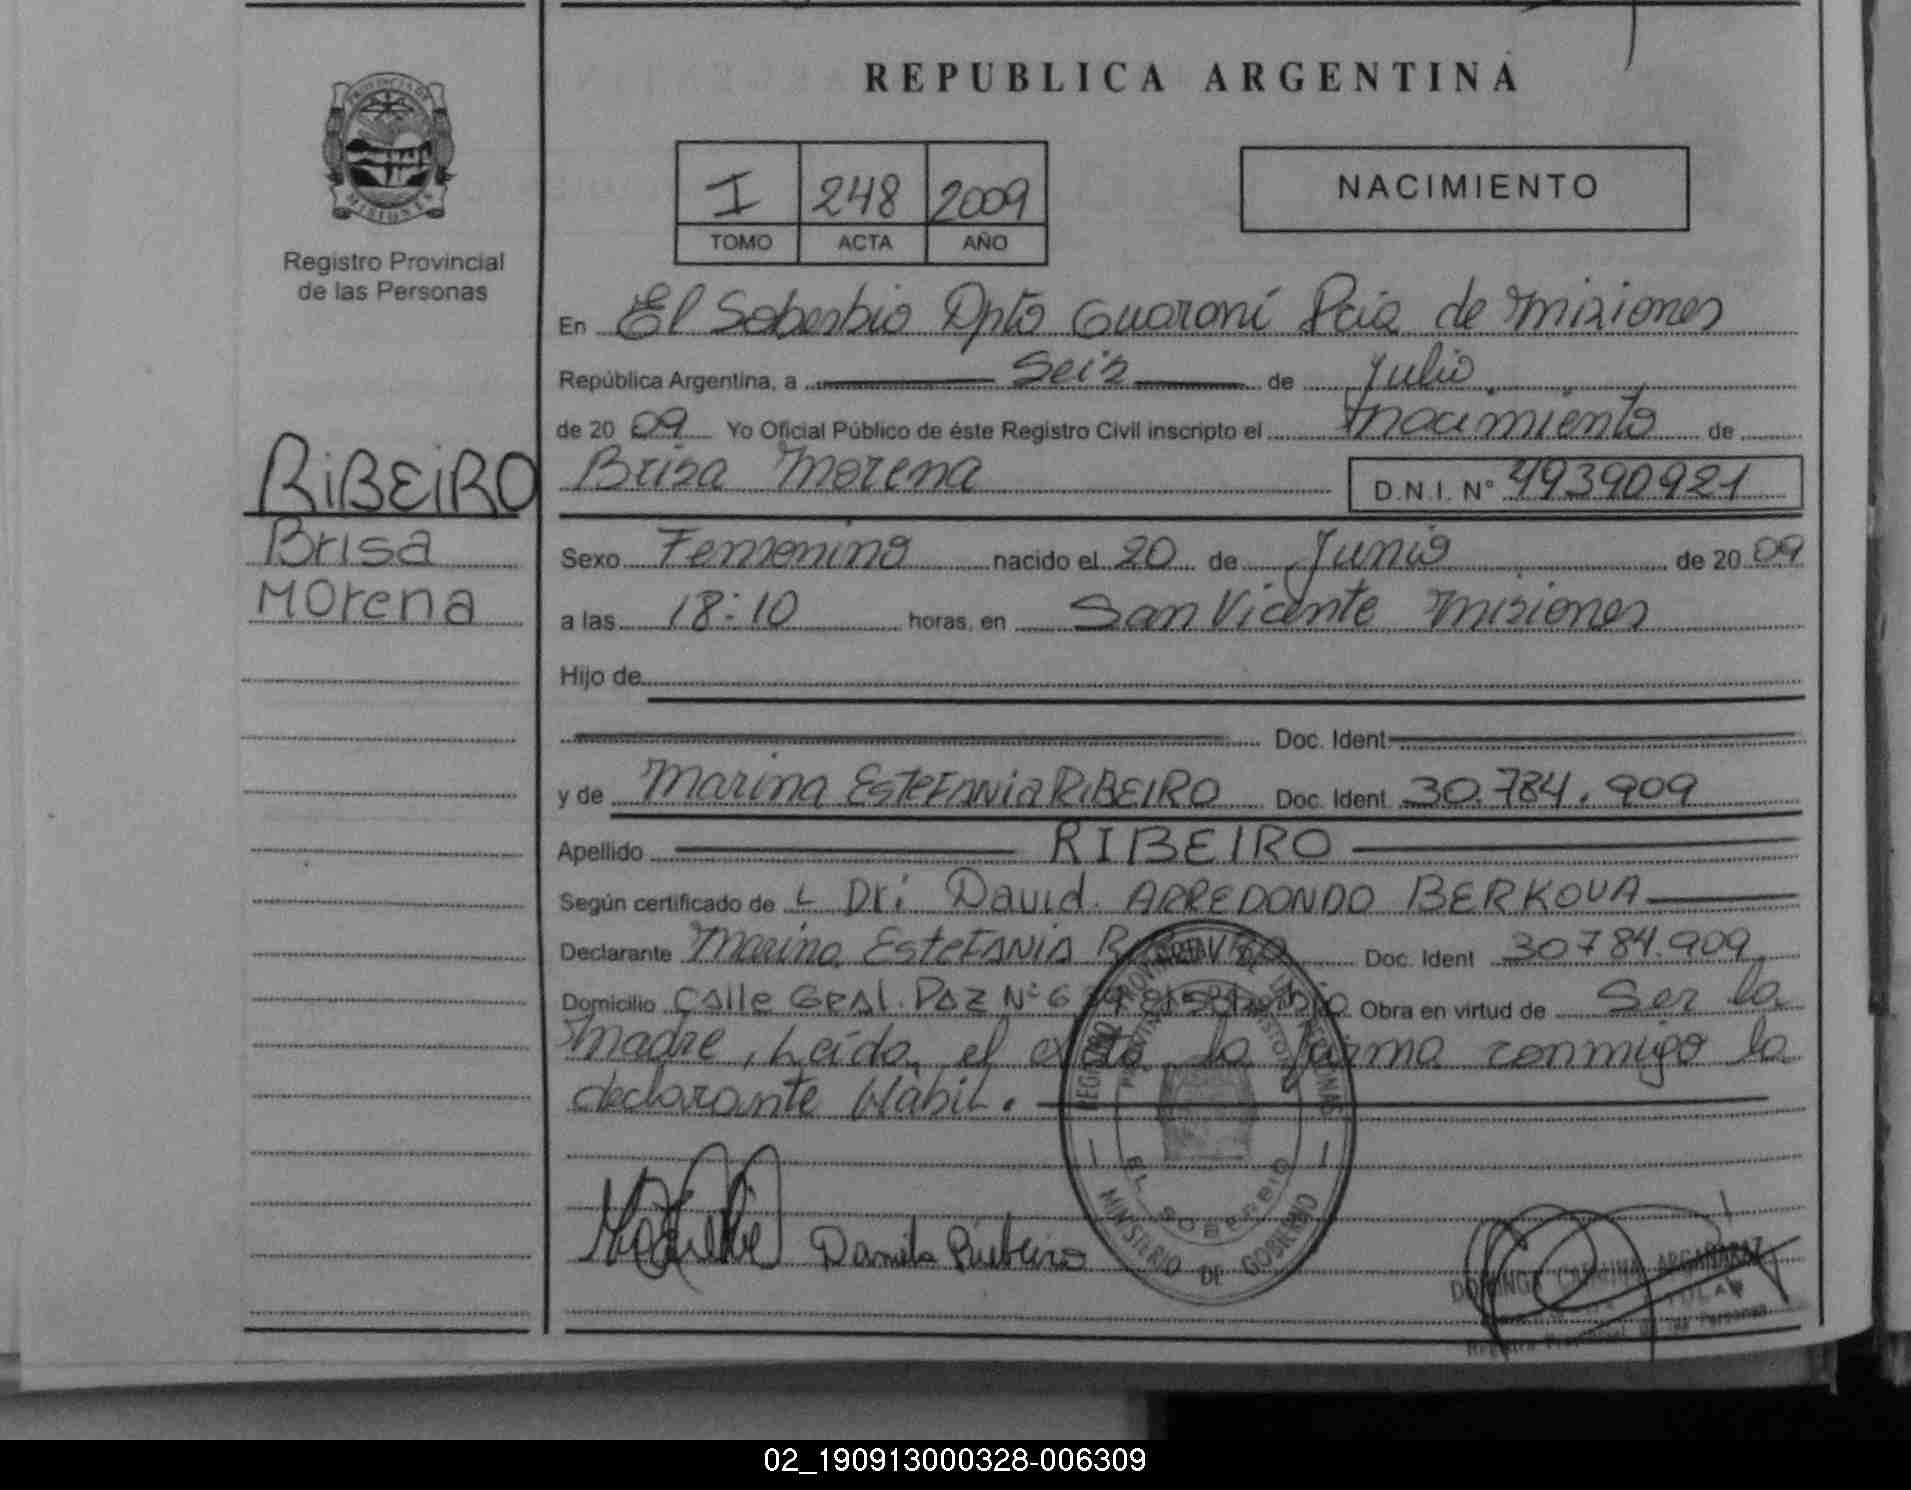 REPUBLICA ARGENTINA
PROVINCIA DE
MISIONES
Registro Provincial
de las Personas
I 248 2009
TOMO ACTA AÑO
NACIMIENTO
En El Soberbio Dpto Guaraní Pcia de Misiones
República Argentina, a Seis de Julio
de 2009 Yo Oficial Público de éste Registro Civil inscripto el nacimiento de
Brisa Morena D.N.I. N° 49390921
RiBEiRO
Brisa
Morena
Sexo Femenino nacido el 20 de Junio de 2009
a las 18:10 horas, en San Vicente Misiones
Hijo de
Doc. Ident
y de Marina EsteFania RiBEIRO Doc. Ident 30.784.909
Apellido RIBEIRO
Según certificado de L Dr: David ARREDONDO BERKOVA
Declarante Marina EsteFania Doc. Ident 30784.909
Domicilio Calle Gral. Paz N° El Soberbio Obra en virtud de Ser la
Madre, Leída el acta la firma conmigo la
declarante Habil.
REGISTRO PROVINCIAL DE LAS PERSONAS
EL SOBERBIO
MINISTERIO DE GOBIERNO
ARGAÑARAZ
Registro Provincial de las Personas
02_190913000328-006309